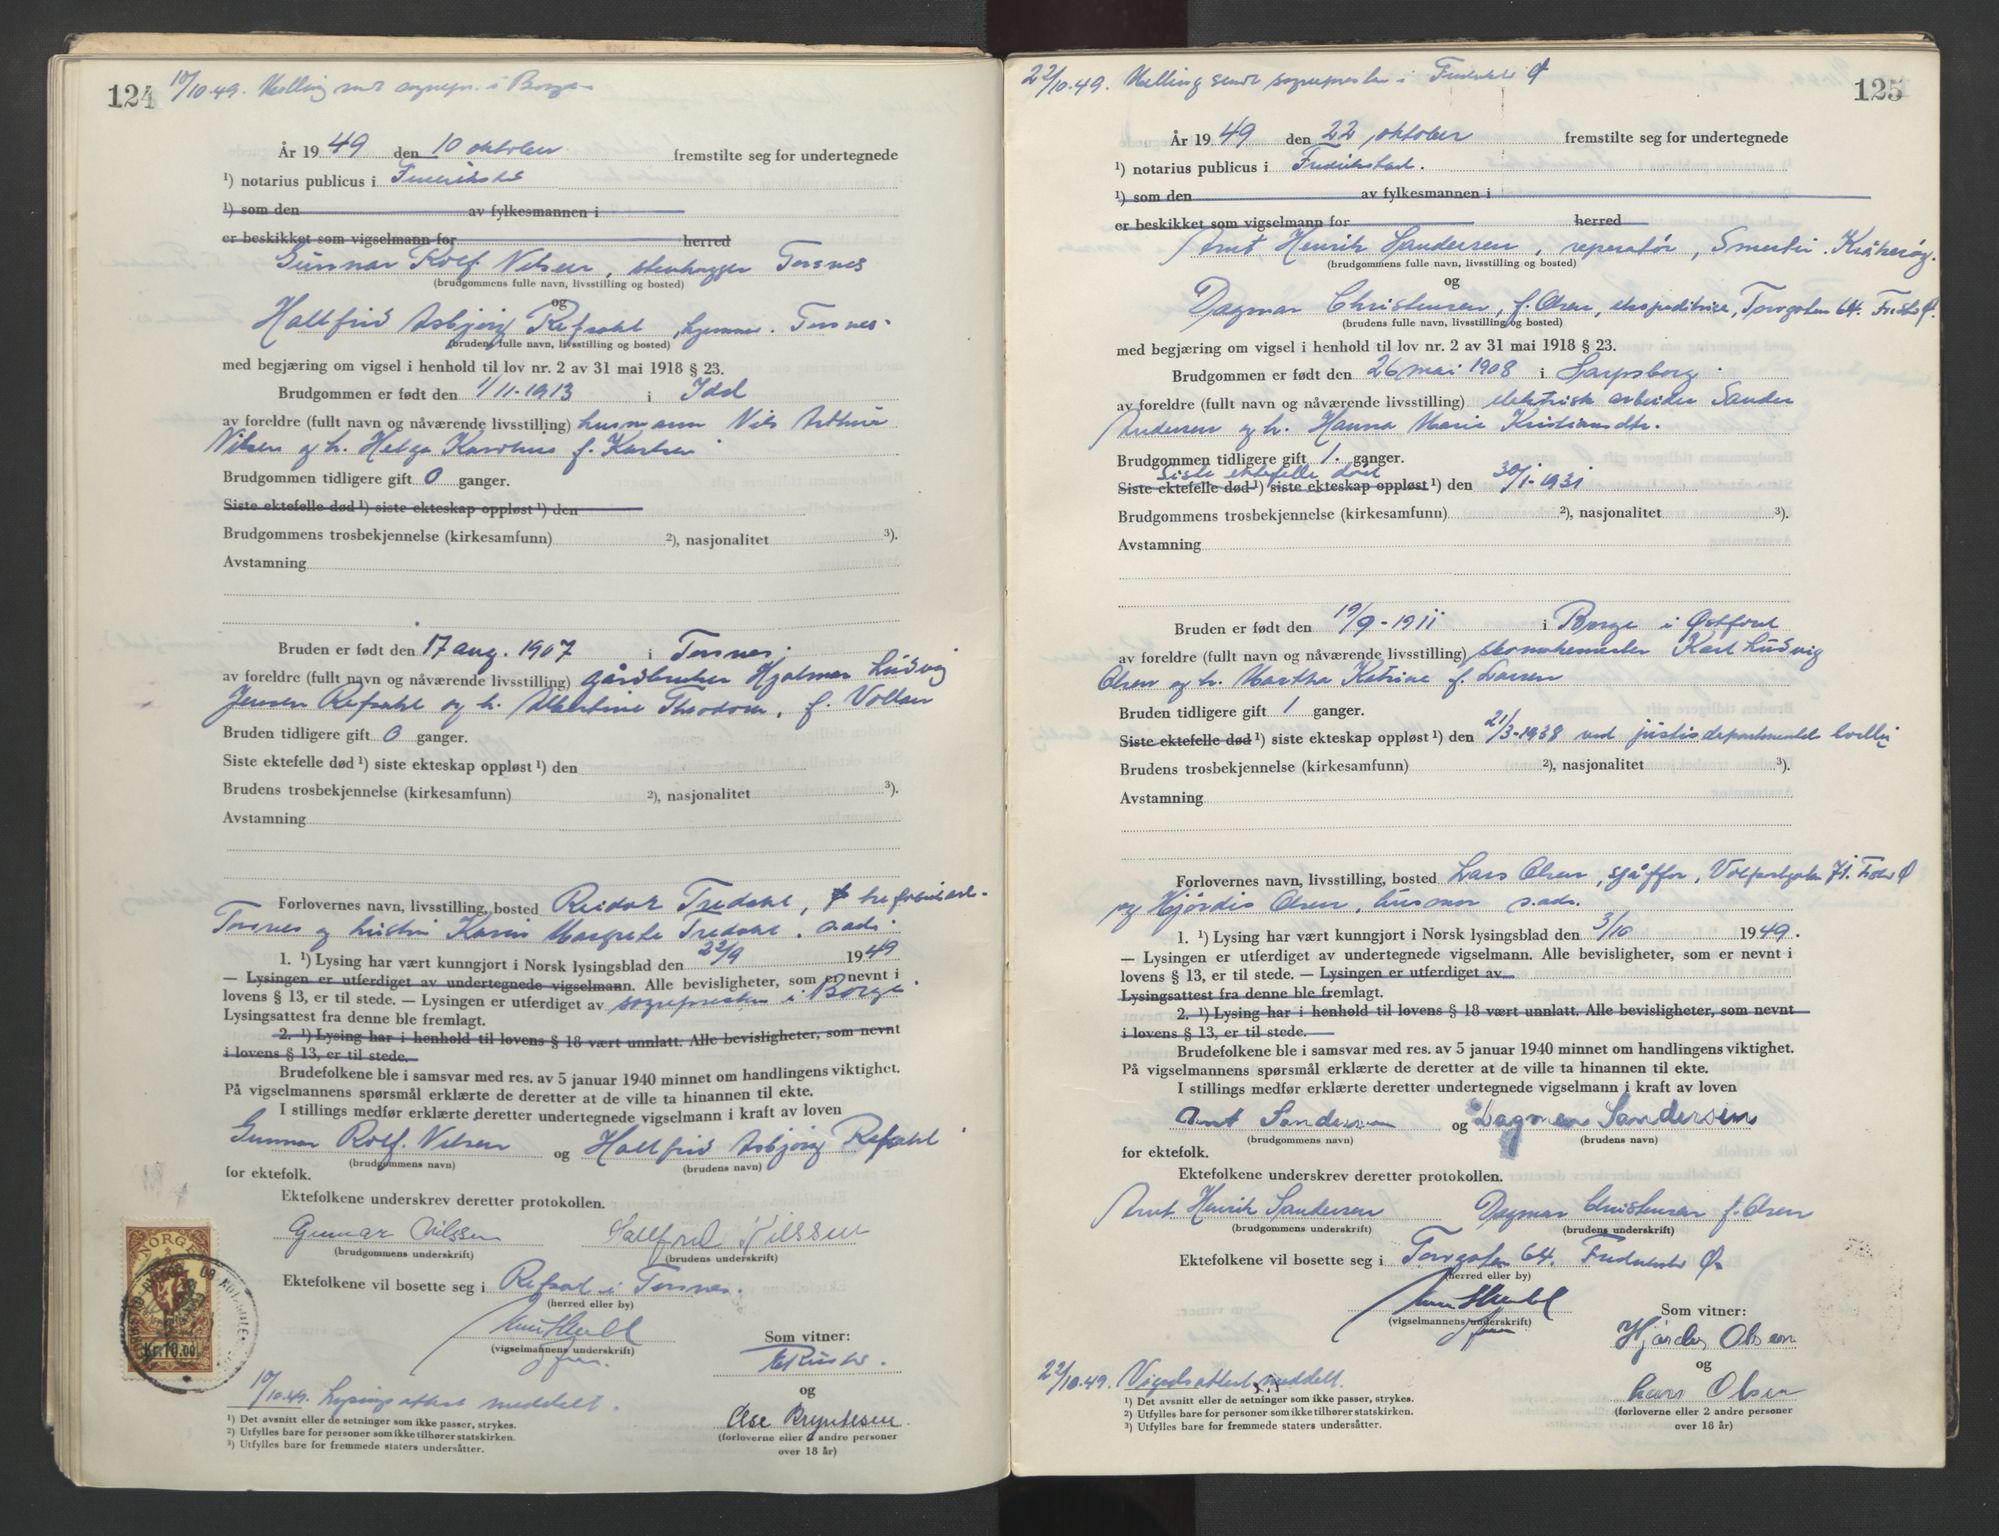 124
10/10.49. Melding sendt sognepr. i Borge
År 1949 den 10 oktober fremstilte seg for undertegnede
1) notarius publicus i Fredrikstad
1) som den av fylkesmannen i
er beskikket som vigselmann for herred
Gunnar Rolf Nilsen, stenhugger Torsnes
(brudgommens fulle navn, livsstilling og bosted)
og
Hallfrid Asbjørg Refsahl, hjemme. Torsnes.
(brudens fulle navn, livsstilling og bosted)
med begjæring om vigsel i henhold til lov nr. 2 av 31 mai 1918 § 23.
Brudgommen er født den 1/11-1913 i Idd
av foreldre (fullt navn og nåværende livsstilling) husmann Nils Arthur
Nilsen og h. Helga Karoline f. Karlsen
Brudgommen tidligere gift 0 ganger.
Siste ektefelle død 1) siste ekteskap oppløst 1) den
Brudgommens trosbekjennelse (kirkesamfunn) 2), nasjonalitet 3).
Avstamning
Bruden er født den 17 aug. 1907 i Torsnes.
av foreldre (fullt navn og nåværende livsstilling) gårdbruker Hjalmar Ludvig
Jensen Refsahl og h. Albertine Theodora, f. Vollan
Bruden tidligere gift 0 ganger.
Siste ektefelle død 1) siste ekteskap oppløst 1) den
Brudens trosbekjennelse (kirkesamfunn) 2), nasjonalitet 3).
Avstamning
Forlovernes navn, livsstilling, bosted Reidar Tredahl,
Torsnes og hustru Karin Margrete Tredahl. s.ads
1. 1) Lysing har vært kunngjort i Norsk lysingsblad den 22/9 1949
— Lysingen er utferdiget av undertegnede vigselmann. Alle bevisligheter, som er nevnt i
lovens § 13, er til stede. — Lysingen er utferdiget av sognepresten i Borge.
Lysingsattest fra denne ble fremlagt.
2. 1) Lysing har i henhold til lovens § 18 vært unnlatt. Alle bevisligheter, som nevnt
i lovens § 13, er til stede.
Brudefolkene ble i samsvar med res. av 5 januar 1940 minnet om handlingens viktighet.
På vigselmannens spørsmål erklærte de deretter at de ville ta hinannen til ekte.
I stillings medfør erklærte deretter undertegnede vigselmann i kraft av loven
Gunnar Rolf Nilsen og Hallfrid Asbjørg Refsahl
(brudgommens navn) (brudens navn)
for ektefolk.
Ektefolkene underskrev deretter protokollen.
Gunnar Nilssen Hallfrid Nilssen
(brudgommens underskrift) (brudens underskrift)
Ektefolkene vil bosette seg i Refsal i Torsnes.
(herred eller by)
(vigselmannens underskrift)
Som vitner:
og
Else Bryntesen
(forloverne eller 2 andre personer
over 18 år)
NORGE
Kr. 10.00
10/10.49. Lysingsattest meddelt.
1) Det avsnitt eller de setninger som ikke passer, strykes.
2) Utfylles bare for personer som ikke tilhører statskirken.
3) Utfylles bare for fremmede staters undersåtter.
125
22/10.49. Melding sendt sognepresten i Fredrikstad Ø
År 1949 den 22 oktober fremstilte seg for undertegnede
1) notarius publicus i Fredrikstad.
1) som den av fylkesmannen i
er beskikket som vigselmann for herred
Arnt Henrik Sandersen, reperatør, Smertu. Kråkerøy.
(brudgommens fulle navn, livsstilling og bosted)
og
Dagmar Christensen, f. Olsen, ekspeditrise, Torvgaten 64. Fredrikstad Ø.
(brudens fulle navn, livsstilling og bosted)
med begjæring om vigsel i henhold til lov nr. 2 av 31 mai 1918 § 23.
Brudgommen er født den 26 mai 1908 i Sarpsborg
av foreldre (fullt navn og nåværende livsstilling) elektrisk arbeider Sander
Andersen og h. Hanna Marie Kristiansdtr.
Brudgommen tidligere gift 1. ganger.
Siste ektefelle død
Siste ektefelle død 1) siste ekteskap oppløst 1) den 30/1-1931
Brudgommens trosbekjennelse (kirkesamfunn) 2), nasjonalitet 3).
Avstamning
Bruden er født den 19/9-1911 i Borge i Østfold
av foreldre (fullt navn og nåværende livsstilling) skomakermester Karl Ludvig
Olsen og h. Martha Katrine f. Larsen
Bruden tidligere gift 1 ganger.
Siste ektefelle død 1) siste ekteskap oppløst 1) den 21/3-1938 ved justisdepartementets bevilg
Brudens trosbekjennelse (kirkesamfunn) 2), nasjonalitet 3).
Avstamning
Forlovernes navn, livsstilling, bosted Lars Olsen, sjåffør,
og Hjørdis Olsen, husmor s.ads.
1. 1) Lysing har vært kunngjort i Norsk lysingsblad den 3/10 1949.
— Lysingen er utferdiget av undertegnede vigselmann. Alle bevisligheter, som er nevnt i
lovens § 13, er til stede. — Lysingen er utferdiget av
Lysingsattest fra denne ble fremlagt.
2. 1) Lysing har i henhold til lovens § 18 vært unnlatt. Alle bevisligheter, som nevnt
i lovens § 13, er til stede.
Brudefolkene ble i samsvar med res. av 5 januar 1940 minnet om handlingens viktighet.
På vigselmannens spørsmål erklærte de deretter at de ville ta hinannen til ekte.
I stillings medfør erklærte deretter undertegnede vigselmann i kraft av loven
Arnt Sandersen og Dagmar Sandersen
(brudgommens navn) (brudens navn)
for ektefolk.
Ektefolkene underskrev deretter protokollen.
Arnt Henrik Sandersen Dagmar Christensen f. Olsen
(brudgommens underskrift) (brudens underskrift)
Ektefolkene vil bosette seg i Torvgaten 64. Fredrikstad Ø
(herred eller by)
(vigselmannens underskrift)
Som vitner:
Hjørdis Olsen
og
Lars Olsen
(forloverne eller 2 andre personer
over 18 år)
22/10.49. Vigselsattest meddelt.
1) Det avsnitt eller de setninger som ikke passer, strykes.
2) Utfylles bare for personer som ikke tilhører statskirken.
3) Utfylles bare for fremmede staters undersåtter.